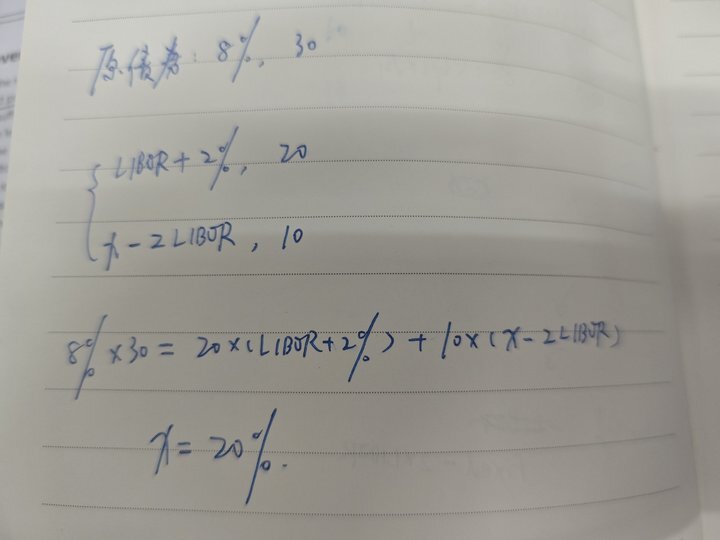 原债券: 8%, 30
LIBOR + 2%, 20
x - 2LIBOR, 10
8% × 30 = 20 × (LIBOR + 2%) + 10 × (x - 2LIBOR)
x = 20%.